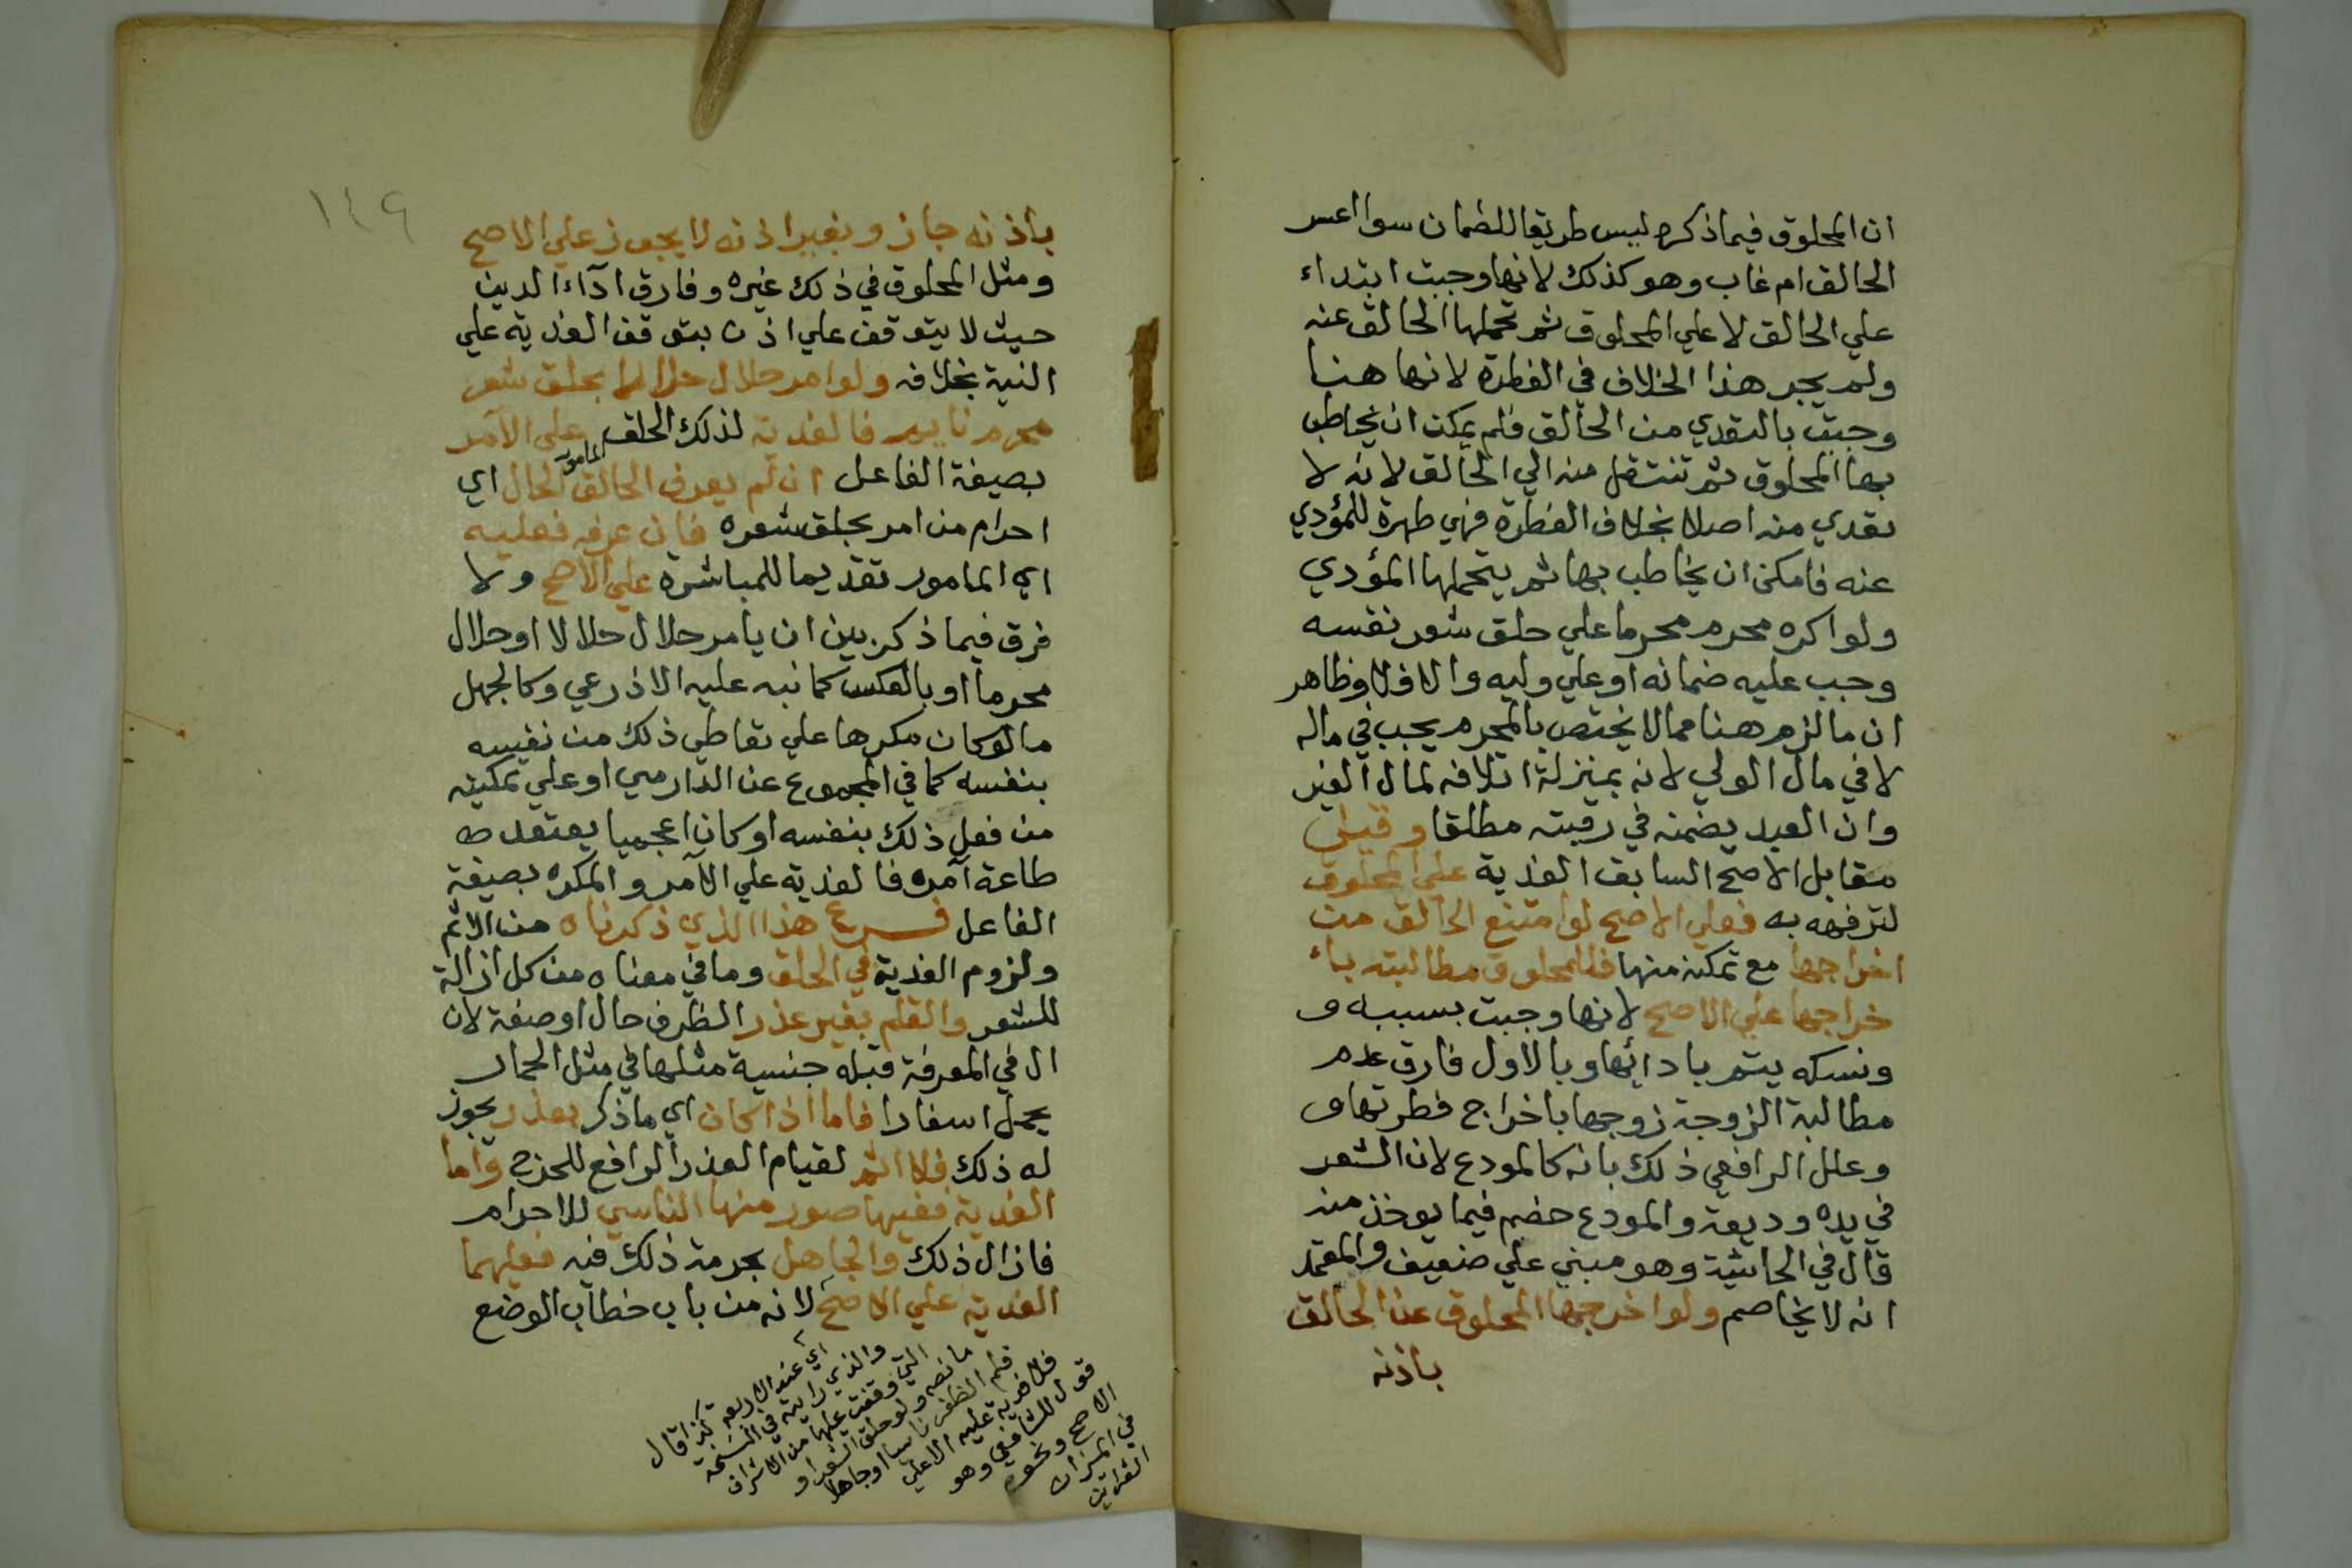 ان المحلوق فيما ذكره ليس طريقا للضمان سوا اعسر
الحالق ام غاب وهو كذلك لانها وجبت ابتداء
علي الحالق لا علي المحلوق ثم تحملها الحالق عنه
ولم يجر هذا الخلاف في الفطرة لانها هنا
وجبت بالتعدي من الحالق فلم يمكن ان يخاطب
بها المحلوق ثم تنتقل منه الي الحالق لانه لا
تعدي منه اصلا بخلاف الفطرة فهي طهرة للمؤدي
عنه فامكن ان يخاطب بها ثم يتحملها المؤدي
ولو اكره محرم محرما علي حلق شعر نفسه
وجب عليه ضمانه او علي وليه والا فلا وظاهر
ان ما لزم هنا مما لا يختص بالمحرم يجب في ماله
لا في مال الولي لانه بمنزلة اتلافه لمال الغير
وان العبد يضمنه في رقبته مطلقا وقيل
مقابل الاصح السابق الفدية علي المحلوق
لترفهه به فعلي الاصح لو امتنع الحالق من
اخراجها مع تمكنه منها فللمحلوق مطالبته باء
خراجها علي الاصح لانها وجبت بسببه و
ونسكه يتم بادائها وبالاول فارق عدم
مطالبة الزوجة زوجها باخراج فطرتها و
وعلل الرافعي ذلك بانه كالمودع لان الشعر
في يده وديعة والمودع خصم فيما يوخذ منه
قال في الحاشية وهو مبني علي ضعيف والمعتمد
انه لا يخاصم ولو اخرجها المحلوق عن الحالق
باذنه
١٤٩
باذنه جاز وبغير اذنه لا يجوز علي الاصح
ومثل المحلوق في ذلك غيره وفارق اداء الدين
حيث لا يتوقف علي اذن بتوقف الفدية علي
النية بخلافه ولو امر حلال حلالا بحلق شعر
محرم نايم فالفدية لذلك الحلق علي الآمر
بصيغة الفاعل ان لم يعرف الحالق المامور الحال اي
احرام من امر بحلق شعره فان عرفه فعليه
اي المامور تقديما للمباشرة علي الاصح ولا
فرق فيما ذكر بين ان يامر حلال حلالا او حلال
محرما او بالعكس كما نبه عليه الاذرعي وكالجهل
ما لو كان مكرها علي تعاطي ذلك من نفسه
بنفسه كما في المجموع عن الدارمي او علي تمكينه
من فعل ذلك بنفسه او كان اعجميا يعتقد ط
طاعة آمره فالفدية علي الآمر والمكره بصيغة
الفاعل فرع هذا الذي ذكرناه من الاثم
ولزوم الفدية في الحلق وما في معناه من كل ازالة
للشعر والقلم بغير عذر الظرف حال او صفة لان
ال في المعرفة قبله جنسية مثلها في مثل الحمار
يحمل اسفارا فاما اذا كان اي ما ذكر بعذر يجوز
له ذلك فلا اثم لقيام العذر الرافع للحرج واما
الفدية ففيها صور منها الناسي للاحرام
فازال ذلك والجاهل بحرمة ذلك فيه فعليهما
الفدية علي الاصح لانه من باب خطاب الوضع
اي عند الاربعة كذا قال
والذي رايته في النسخة
التي وقفت عليها من الاشراف
ما نصه ولو حلق الشعر او
قلم الظفر ناسيا او جاهلا
فلا فدية عليه الا علي
قول للشافعي وهو
الاصح ونحوه
في الميزان